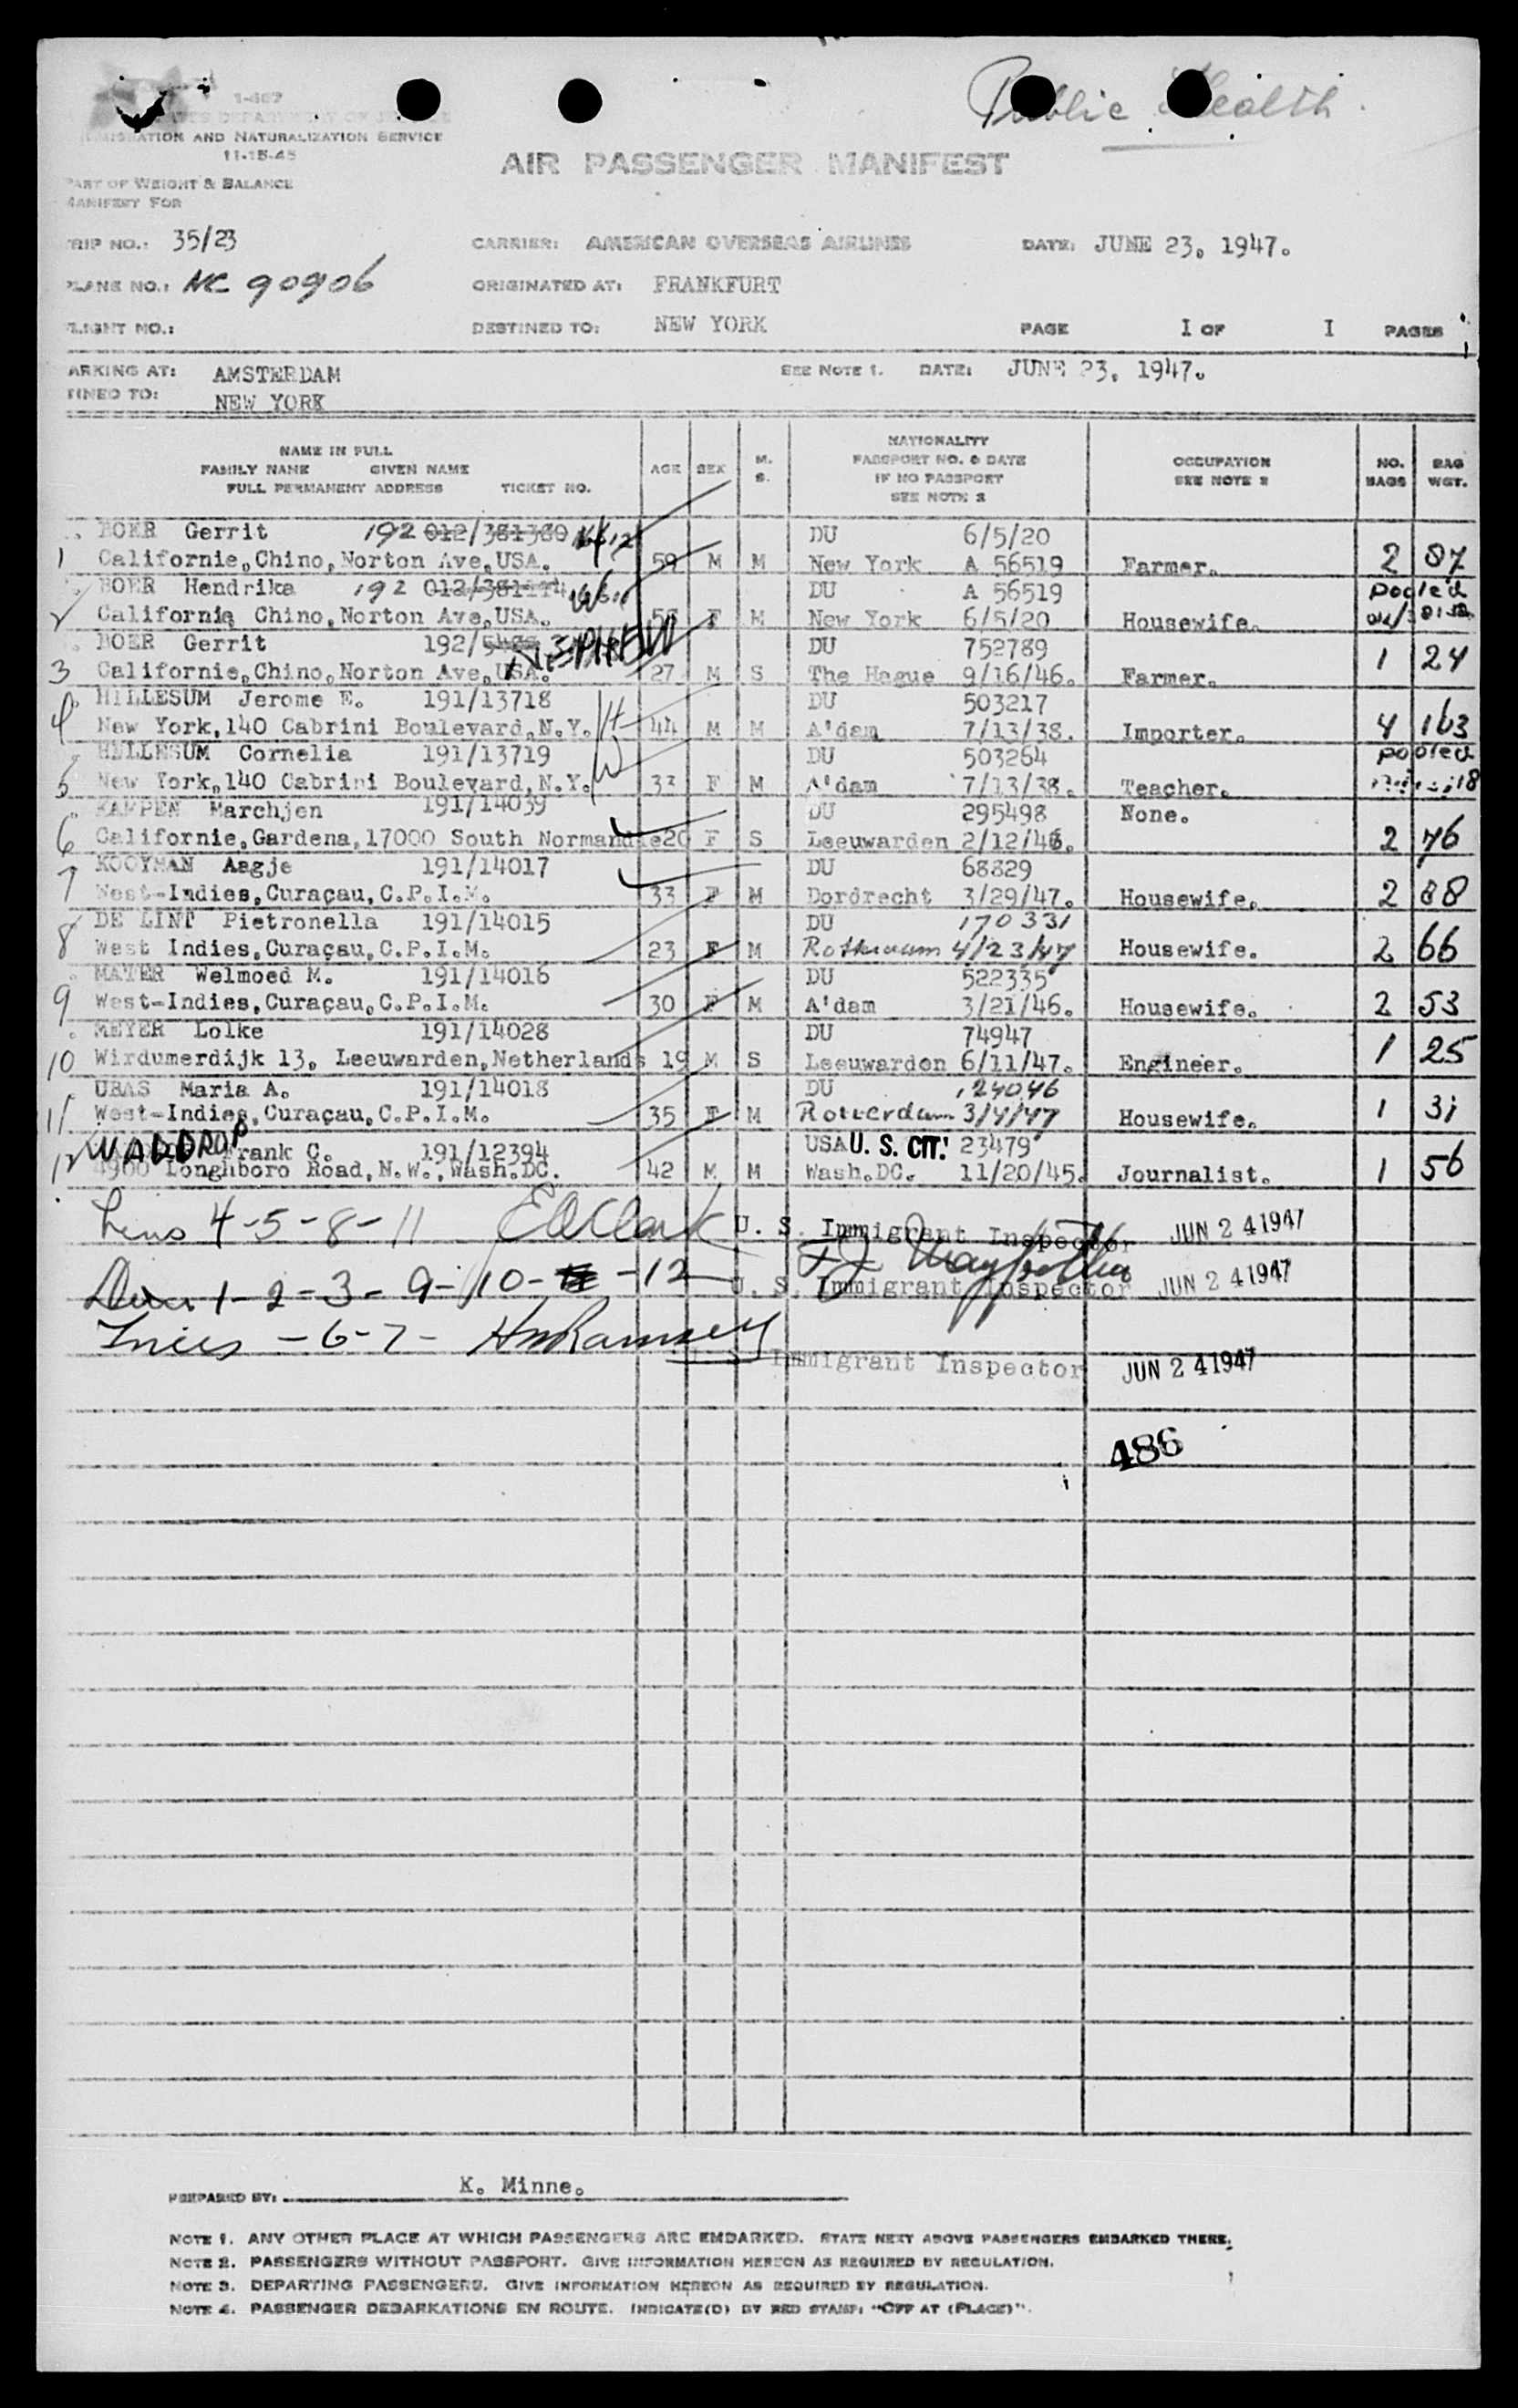 Public Health.
1-467
IMMIGRATION AND NATURALIZATION SERVICE
11-15-45
AIR PASSENGER MANIFEST
PART OF WEIGHT & BALANCE
MANIFEST FOR
TRIP NO.: 35/23 CARRIER: AMERICAN OVERSEAS AIRLINES DATE: JUNE 23, 1947.
PLANE NO.: NC 90906 ORIGINATED AT: FRANKFURT
FLIGHT NO.: DESTINED TO: NEW YORK PAGE I OF I PAGES
ARKING AT: AMSTERDAM SEE NOTE 1. DATE: JUNE 23, 1947.
TINED TO: NEW YORK
NAME IN FULL
FAMILY NAME GIVEN NAME
FULL PERMANENT ADDRESS TICKET NO. AGE SEX M. S. NATIONALITY PASSPORT NO. & DATE IF NO PASSPORT SEE NOTE 2 OCCUPATION SEE NOTE 2 NO. BAGS BAG WGT.
BOER Gerrit 192 012/381380 DU 6/5/20
1 Californie,Chino,Norton Ave,USA. 59 M M New York A 56519 Farmer. 2 87
BOER Hendrika 192 DU A 56519 pooled
2 Californie Chino,Norton Ave,USA. F M New York 6/5/20 Housewife.
BOER Gerrit 192/ NEPHEW DU 752789
3 Californie,Chino,Norton Ave,USA. 27 M S The Hague 9/16/46. Farmer. 1 24
HILLESUM Jerome E. 191/13718 H DU 503217
4 New York,140 Cabrini Boulevard,N.Y. 44 M M A'dam 7/13/38. Importer. 4 103
HILLESUM Cornelia 191/13719 W DU 503264 pooled
5 New York,140 Cabrini Boulevard,N.Y. 33 F M A'dam 7/13/38. Teacher.
KAMPEN Marchjen 191/14039 DU 295498 None.
6 Californie,Gardena,17000 South Normandie 20 F S Leeuwarden 2/12/46. 2 76
KOOYMAN Aagje 191/14017 DU 68829
7 West-Indies,Curaçau,C.P.I.M. 33 F M Dordrecht 3/29/47. Housewife. 2 88
DE LINT Pietronella 191/14015 DU 170331
8 West Indies,Curaçau,C.P.I.M. 23 F M 4/23/47 Housewife. 2 66
MAYER Welmoed M. 191/14016 DU 522335
9 West-Indies,Curaçau,C.P.I.M. 30 F M A'dam 3/21/46. Housewife. 2 53
MEYER Lolke 191/14028 DU 74947
10 Wirdumerdijk 13, Leeuwarden,Netherlands 19 M S Leeuwarden 6/11/47. Engineer. 1 25
UBAS Maria A. 191/14018 DU 124046
11 West-Indies,Curaçau,C.P.I.M. 35 F M Rotterdam 3/4/47 Housewife. 1 31
WALDROP Frank C. 191/12394 USA U. S. CIT. 23479
12 4900 Longhboro Road,N.W.,Wash.DC. 42 M M Wash.DC. 11/20/45. Journalist. 1 56
4-5-8-11 E A Clark U. S. Immigrant Inspector JUN 24 1947
1-2-3-9-10- -12 U. S. Immigrant Inspector JUN 24 1947
-6-7- Ramsey Immigrant Inspector JUN 24 1947
486
PREPARED BY: K. Minne.
NOTE 1. ANY OTHER PLACE AT WHICH PASSENGERS ARE EMBARKED. STATE NEXT ABOVE PASSENGERS EMBARKED THERE.
NOTE 2. PASSENGERS WITHOUT PASSPORT. GIVE INFORMATION HEREON AS REQUIRED BY REGULATION.
NOTE 3. DEPARTING PASSENGERS. GIVE INFORMATION HEREON AS REQUIRED BY REGULATION.
NOTE 4. PASSENGER DEBARKATIONS EN ROUTE. INDICATE(D) BY RED STAMP: "OFF AT (PLACE)".